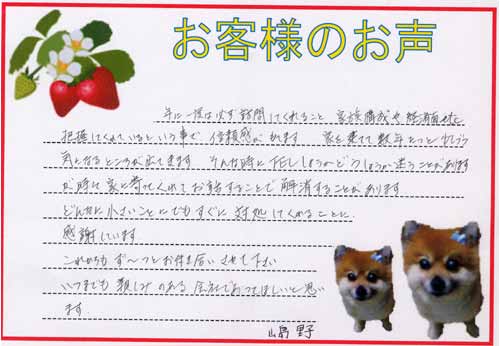 お客様のお声
年に一度は必ず訪問してくれること 家族構成や経済面まで
把握してくれているという事で 信頼感があります 家を建てて数年たつと少しづつ
気になるところが出てきます そんな時にTELしようかどうしようか迷うことがあります
が時に家に寄ってくれてお話することで解消することがあります
どんなに小さいことにでもすぐに対処してくれることに
感謝しています
これからもず〜っとお付き合いさせて下さい
いつまでも親しみのある会社であってほしいと思い
ます